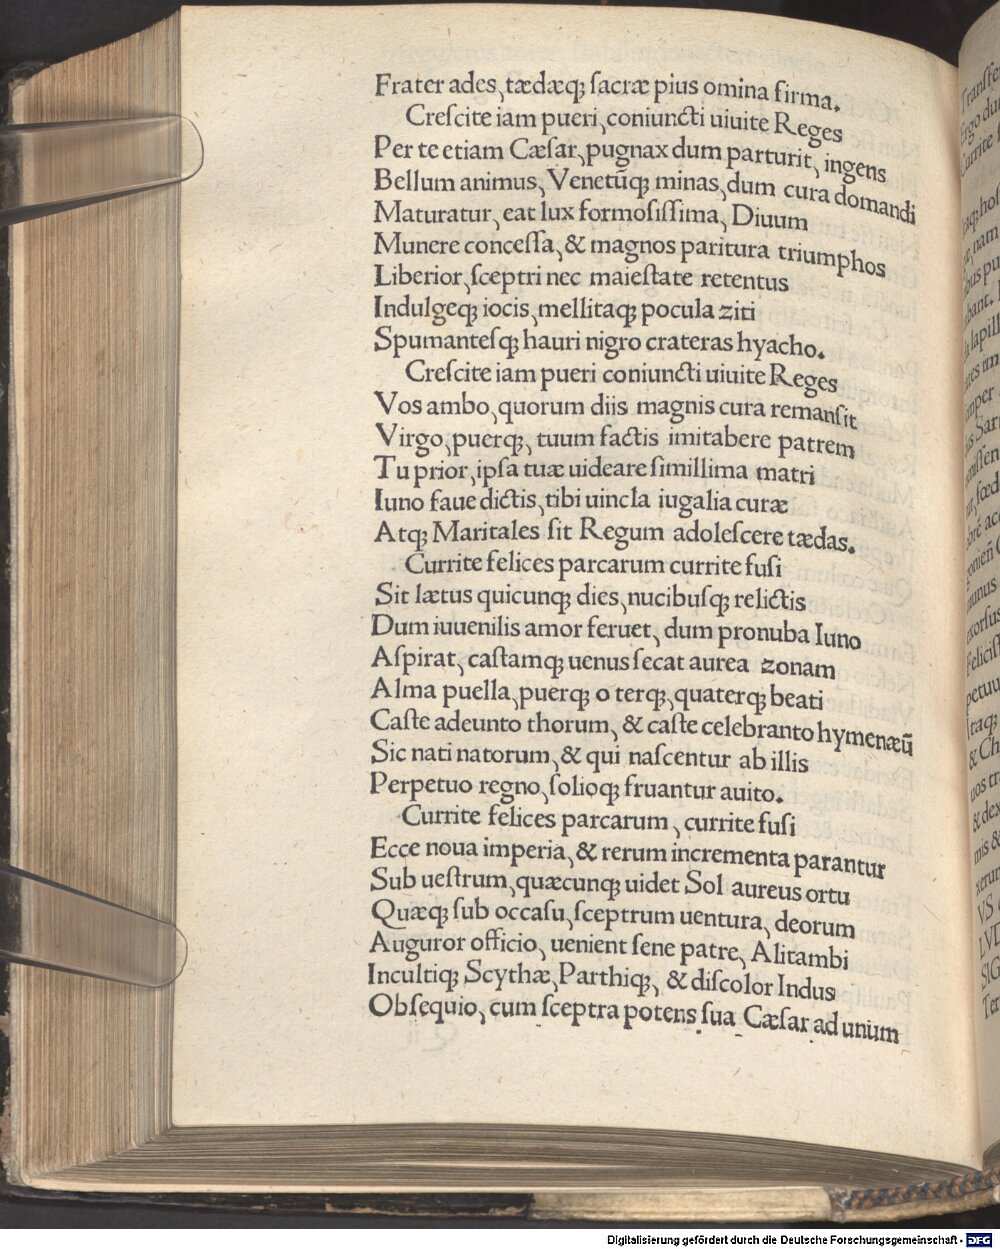 Frater ades, tædæq; ſacræ pius omina firma.
Creſcite iam pueri, coniuncti uiuite Reges
Per te etiam Cæſar, pugnax dum parturit, ingens
Bellum animus, Venetūq; minas, dum cura domandi
Maturatur, eat lux formoſiſſima, Diuum
Munere conceſſa, & magnos paritura triumphos
Liberior, ſceptri nec maieſtate retentus
Indulgeq; iocis, mellitaq; pocula ziti
Spumanteſq; hauri nigro crateras hyacho.
Creſcite iam pueri coniuncti uiuite Reges
Vos ambo, quorum diis magnis cura remanſit
Virgo, puerq;, tuum factis imitabere patrem
Tu prior, ipſa tuæ uideare ſimillima matri
Iuno faue dictis, tibi uincla iugalia curæ
Atq; Maritales ſit Regum adoleſcere tædas.
Currite felices parcarum currite fuſi
Sit lætus quicunq; dies, nucibuſq; relictis
Dum iuuenilis amor feruet, dum pronuba Iuno
Aſpirat, caſtamq; uenus ſecat aurea zonam
Alma puella, puerq; o terq;, quaterq; beati
Caſte adeunto thorum, & caſte celebranto hymenæū
Sic nati natorum, & qui naſcentur ab illis
Perpetuo regno, ſolioq; fruantur auito.
Currite felices parcarum, currite fuſi
Ecce noua imperia, & rerum incrementa parantur
Sub ueſtrum, quæcunq; uidet Sol aureus ortu
Quæq; ſub occaſu, ſceptrum uentura, deorum
Auguror officio, uenient ſene patre, Alitambi
Incultiq; Scythæ, Parthiq;, & diſcolor Indus
Obſequio, cum ſceptra potens ſua Cæſar ad unum
Digitalisierung gefördert durch die Deutsche Forschungsgemeinschaft - DFG